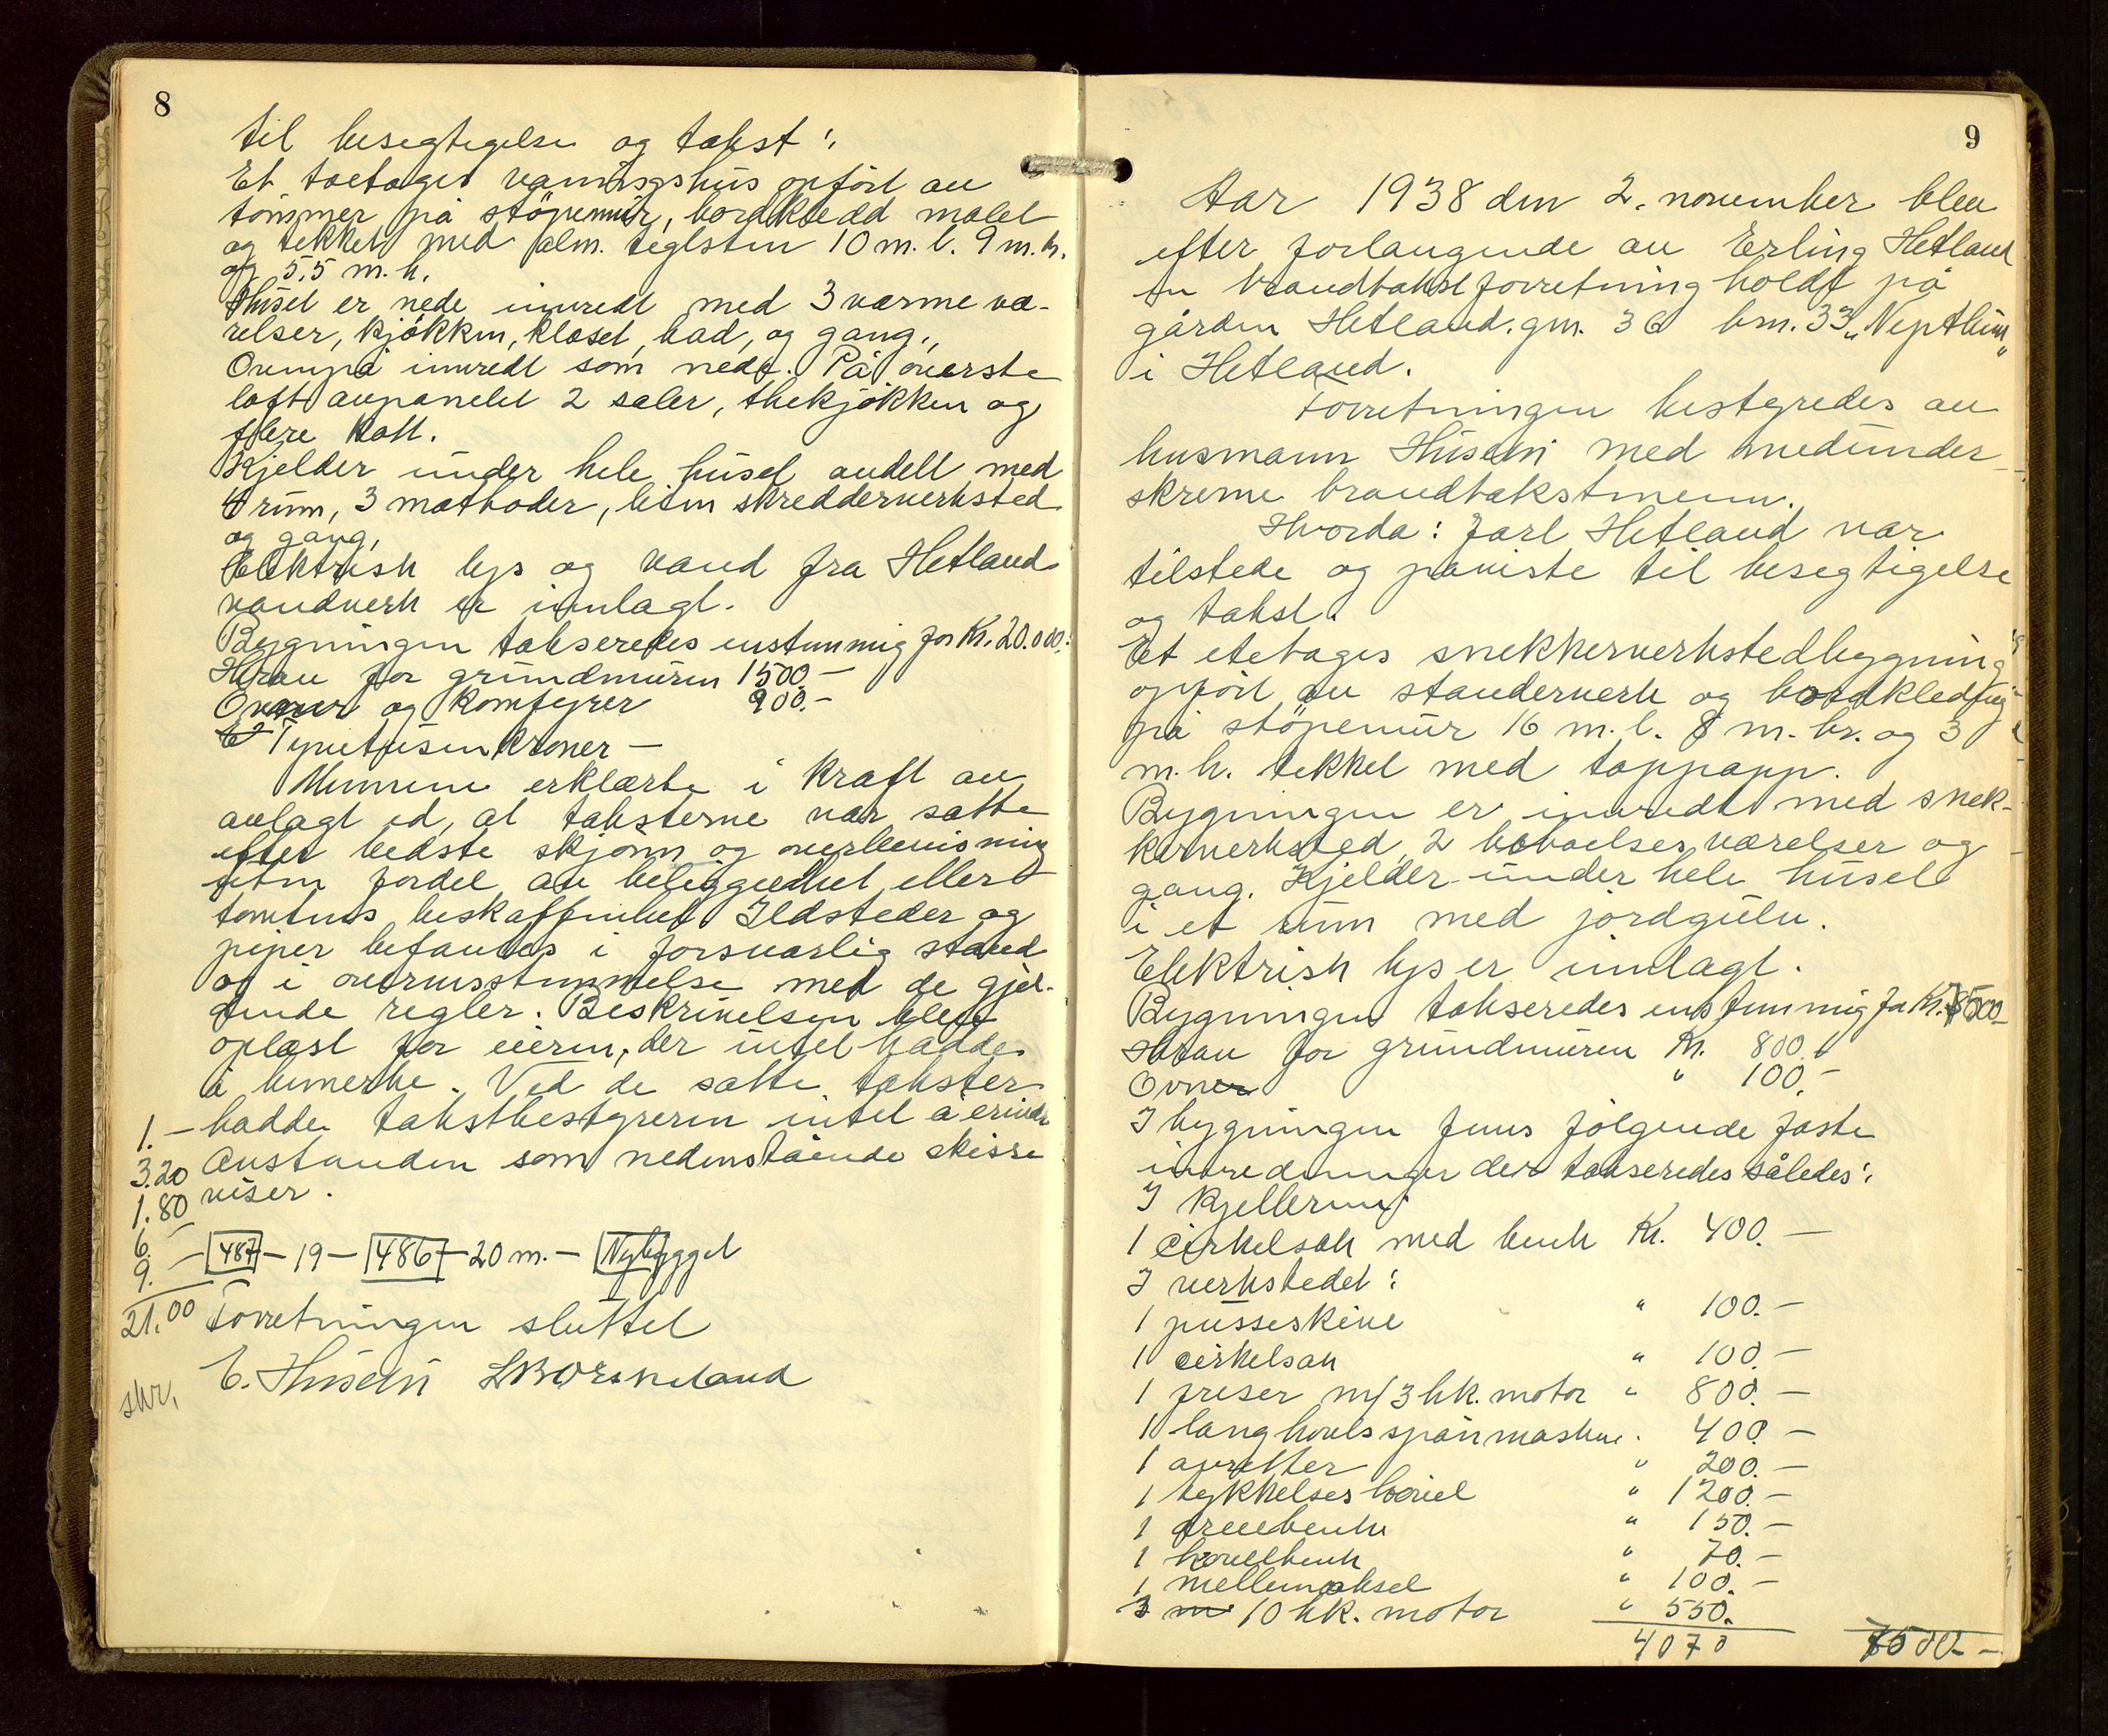 8
til besegtigelse og takst:
Et toetages vaanigshus opført av
tømmer på støpemur, bordkledd malet
og tekket med alm. teglsten 10 m. l. 9 m. br.
og 5,5 m. h.
Huset er nede innredt med 3 varme væ-
relser, kjøkken, kloset, bad, og gang.
Ovenpå innredt som nede. På øverste
loft avpanelet 2 saler, thekjøkken og
flere kott.
Kjelder under hele huset avdelt med
4 rum, 3 matboder, liten skredderverksted
og gang.
Elektrisk lys og vand fra Hetland
vandverk er innlagt.
Bygningen takseredes enstemmig for Kr. 20.000.-
Herav for grundmuren 1500.-
Ovner og Komfyrer 900.-
Tyvetusen kroner -
Mennene erklærte i kraft av
avlagt ed, at taksterne var satte
efter bedste skjønn og overbevisning
uten fordel av beliggenhet eller
tomtens beskaffenhet Ildsteder og
piper befandtes i forsvarlig stand
og i overensstemmelse med de gjel-
dende regler. Beskrivelsen blev
oplæst for eieren, der intet hadde
å bemerke. Ved de satte takster
1.- hadde takstbestyreren intet å erindre
3.20 Avstanden som nedenstående skisse
1.80 viser.
6.-
9.- 487 - 19 - 486 - 20 m. - Nybygget
21.00 Forretningen sluttet
skr. E. Husebø
9
Aar 1938 den 2. november blev
efter forlangende av Erling Hetland
en brandtakstforretning holdt på
gården Hetland. gn. 36 bn. 33 "Nepthun"
i Hetland.
Forretningen bestyredes av
husmann Husebø med medunder-
skrevne brandtakstmenn.
Hvorda: Jarl Hetland var
tilstede og paviste til besegtigelse
og takst.
Et etetages snekkerverkstedbygning
opført av standerverk og bordkledning
på støpemur 16 m. l. 8 m. br. og 3
m. h. tekket med tappapp.
Bygningen er innredt med snek-
kerverksted, 2 beboelses værelser og
gang. Kjelder under hele huset
i et rum med jordgulv.
Elektrisk lys er innlagt.
Bygningen takseredes enstemmig for Kr. 7500-
Herav for grundmuren Kr. 800.-
Ovner " 100.-
I bygningen fins følgende faste
innredninger der takseredes således:
I Kjelleren:
1 cirkelsak med benk Kr. 400.-
I verkstedet:
1 pusseskive " 100.-
1 cirkelsak " 100.-
1 freser m/3 hk. motor " 800.-
1 langhvols spånmaskine " 400.-
1 avretter " 200.-
1 tykkelseshøvel " 1200.-
1 dreiebenk " 150.-
1 høvelbenk " 70.-
1 mellemaksel " 100.-
10 hk. motor " 550.-
4070 7500-